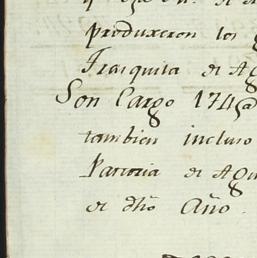 produxeron los
Frasquita de Ag
Son Cargo 1745
tambien incluso
Parzoria de Agu
de dho Año.